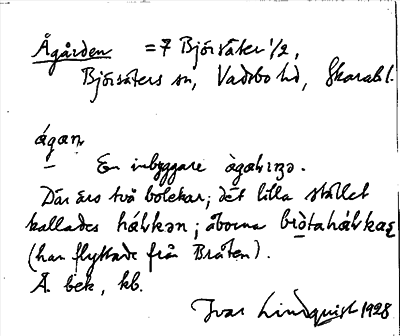 Ågården = 7 Björsäter 1/2,
Björsäters sn, Vadsbo hd, Skarab l.
ágaṇ
– En inbyggare àgaɧɪŋə.
Där ärs två bolekar; det lilla stället
kallades hálkən; åborna
(han flyttade från Bråten).
Å. bek, kb.
Ivar Lindquist 1928